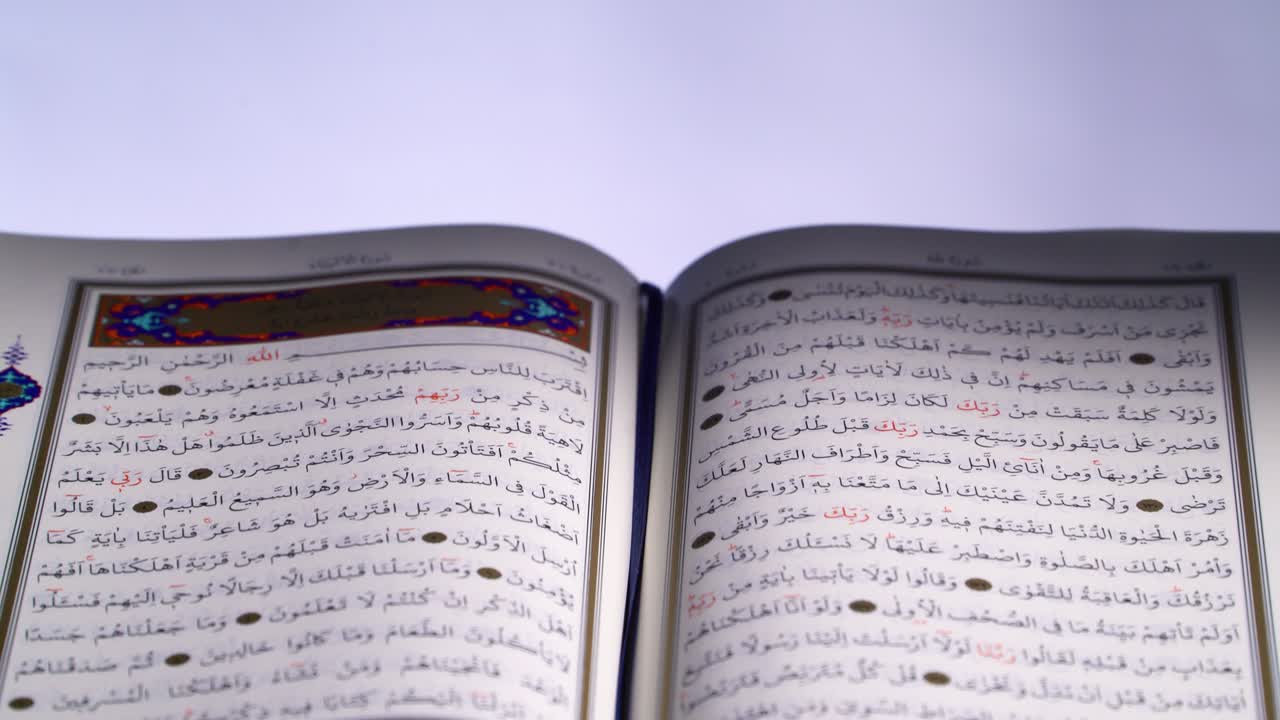 سُورَةُ طٰهٰ
قَالَ كَذٰلِكَ اَتَتْكَ اٰيَاتُنَا فَنَسِيتَهَا وَكَذٰلِكَ الْيَوْمَ تُنْسٰى وَكَذٰلِكَ
نَجْزِى مَنْ اَسْرَفَ وَلَمْ يُؤْمِنْ بِاٰيَاتِ رَبِّهِ وَلَعَذَابُ الْاٰخِرَةِ اَشَدُّ
وَاَبْقٰى اَفَلَمْ يَهْدِ لَهُمْ كَمْ اَهْلَكْنَا قَبْلَهُمْ مِنَ الْقُرُونِ
يَمْشُونَ فِى مَسَاكِنِهِمْ اِنَّ فِى ذٰلِكَ لَاٰيَاتٍ لِاُولِى النُّهٰى
وَلَوْلَا كَلِمَةٌ سَبَقَتْ مِنْ رَبِّكَ لَكَانَ لِزَامًا وَاَجَلٌ مُسَمًّى
فَاصْبِرْ عَلٰى مَا يَقُولُونَ وَسَبِّحْ بِحَمْدِ رَبِّكَ قَبْلَ طُلُوعِ الشَّمْسِ
وَقَبْلَ غُرُوبِهَا وَمِنْ اٰنَائِ الَّيْلِ فَسَبِّحْ وَاَطْرَافَ النَّهَارِ لَعَلَّكَ
تَرْضٰى وَلَا تَمُدَّنَّ عَيْنَيْكَ اِلٰى مَا مَتَّعْنَا بِهِ اَزْوَاجًا مِنْهُمْ
زَهْرَةَ الْحَيٰوةِ الدُّنْيَا لِنَفْتِنَهُمْ فِيهِ وَرِزْقُ رَبِّكَ خَيْرٌ وَاَبْقٰى
وَأْمُرْ اَهْلَكَ بِالصَّلٰوةِ وَاصْطَبِرْ عَلَيْهَا لَا نَسْـَٔلُكَ رِزْقًا نَحْنُ
نَرْزُقُكَ وَالْعَاقِبَةُ لِلتَّقْوٰى وَقَالُوا لَوْلَا يَأْتِينَا بِاٰيَةٍ مِنْ رَبِّهِ
اَوَلَمْ تَأْتِهِمْ بَيِّنَةُ مَا فِى الصُّحُفِ الْاُولٰى وَلَوْ اَنَّا اَهْلَكْنَاهُمْ
بِعَذَابٍ مِنْ قَبْلِهِ لَقَالُوا رَبَّنَا لَوْلَا اَرْسَلْتَ اِلَيْنَا رَسُولًا فَنَتَّبِعَ
اٰيَاتِكَ مِنْ قَبْلِ اَنْ نَذِلَّ وَنَخْزٰى قُلْ كُلٌّ مُتَرَبِّصٌ فَتَرَبَّصُوا
الصِّرَاطِ السَّوِىِّ وَمَنِ
سُورَةُ الْاَنْبِيَاءِ
بِسْمِ اللّٰهِ الرَّحْمٰنِ الرَّحِيمِ
اِقْتَرَبَ لِلنَّاسِ حِسَابُهُمْ وَهُمْ فِى غَفْلَةٍ مُعْرِضُونَ مَا يَأْتِيهِمْ
مِنْ ذِكْرٍ مِنْ رَبِّهِمْ مُحْدَثٍ اِلَّا اسْتَمَعُوهُ وَهُمْ يَلْعَبُونَ
لَاهِيَةً قُلُوبُهُمْ وَاَسَرُّوا النَّجْوٰى الَّذِينَ ظَلَمُوا هَلْ هٰذَا اِلَّا بَشَرٌ
مِثْلُكُمْ اَفَتَأْتُونَ السِّحْرَ وَاَنْتُمْ تُبْصِرُونَ قَالَ رَبِّى يَعْلَمُ
الْقَوْلَ فِى السَّمَاءِ وَالْاَرْضِ وَهُوَ السَّمِيعُ الْعَلِيمُ بَلْ قَالُوا
اَضْغَاثُ اَحْلَامٍ بَلِ افْتَرٰيهُ بَلْ هُوَ شَاعِرٌ فَلْيَأْتِنَا بِاٰيَةٍ كَمَا
اُرْسِلَ الْاَوَّلُونَ مَا اٰمَنَتْ قَبْلَهُمْ مِنْ قَرْيَةٍ اَهْلَكْنَاهَا اَفَهُمْ
يُؤْمِنُونَ وَمَا اَرْسَلْنَا قَبْلَكَ اِلَّا رِجَالًا نُوحِى اِلَيْهِمْ فَسْـَٔلُوا
اَهْلَ الذِّكْرِ اِنْ كُنْتُمْ لَا تَعْلَمُونَ وَمَا جَعَلْنَاهُمْ جَسَدًا
لَا يَأْكُلُونَ الطَّعَامَ وَمَا كَانُوا خَالِدِينَ ثُمَّ صَدَقْنَاهُمُ
الْوَعْدَ فَاَنْجَيْنَاهُمْ وَمَنْ نَشَاءُ وَاَهْلَكْنَا الْمُسْرِفِينَ
اَنْزَلْنَا اِلَيْكُمْ كِتَابًا فِيهِ